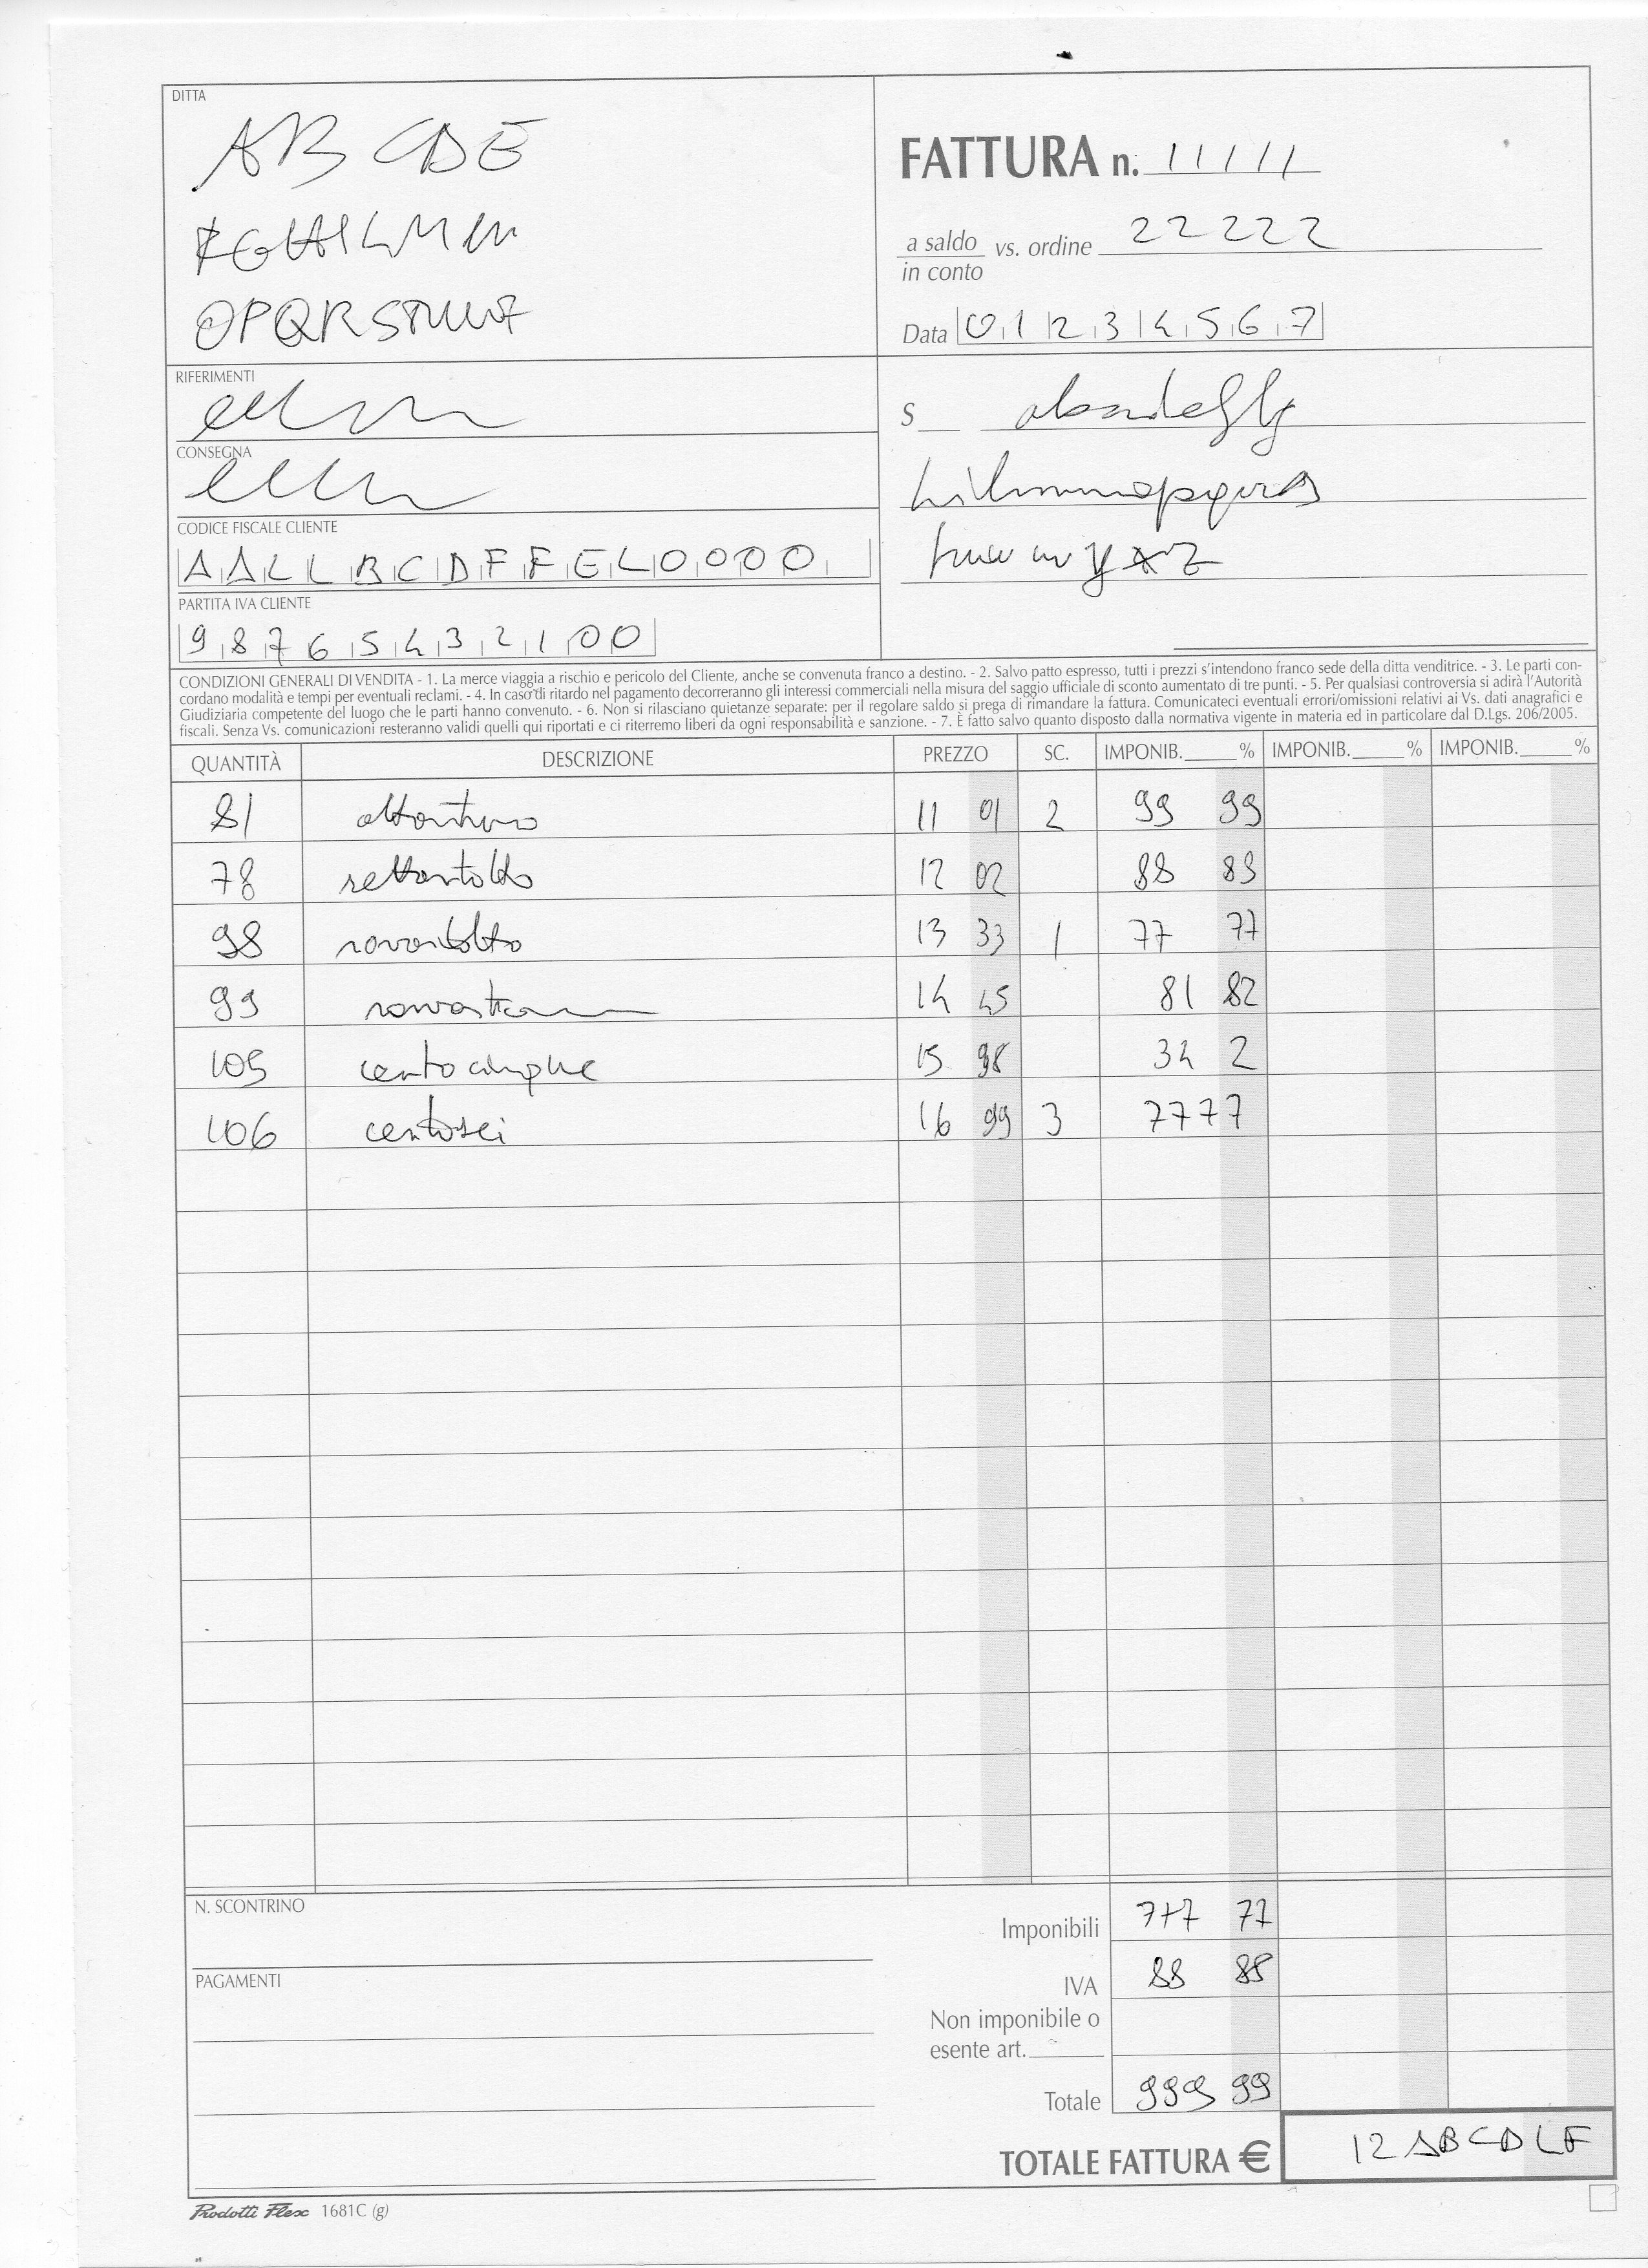 DITTA
ABCDE
OPQRSTUVZ
FATTURA n. 11111
a saldo vs. ordine 22222
in conto
Data 01234567
RIFERIMENTI
CONSEGNA
CODICE FISCALE CLIENTE
AALLBCDFFEL0000
PARTITA IVA CLIENTE
98765432100
S
CONDIZIONI GENERALI DI VENDITA - 1. La merce viaggia a rischio e pericolo del Cliente, anche se convenuta franco a destino. - 2. Salvo patto espresso, tutti i prezzi s'intendono franco sede della ditta venditrice. - 3. Le parti con-
cordano modalità e tempi per eventuali reclami. - 4. In caso di ritardo nel pagamento decorreranno gli interessi commerciali nella misura del saggio ufficiale di sconto aumentato di tre punti. - 5. Per qualsiasi controversia si adirà l'Autorità
Giudiziaria competente del luogo che le parti hanno convenuto. - 6. Non si rilasciano quietanze separate: per il regolare saldo si prega di rimandare la fattura. Comunicateci eventuali errori/omissioni relativi ai Vs. dati anagrafici e
fiscali. Senza Vs. comunicazioni resteranno validi quelli qui riportati e ci riterremo liberi da ogni responsabilità e sanzione. - 7. È fatto salvo quanto disposto dalla normativa vigente in materia ed in particolare dal D.Lgs. 206/2005.
QUANTITÀ DESCRIZIONE PREZZO SC. IMPONIB.____% IMPONIB.____% IMPONIB.____%
81 ottantuno 11 01 2 99 99
78 settantotto 12 02 88 89
98 novantotto 13 33 1 77 77
99 14 45 81 82
105 centocinque 15 98 34 2
106 centosei 16 99 3 7777
N. SCONTRINO
Imponibili 777 77
PAGAMENTI
IVA 88 88
Non imponibile o
esente art.
Totale 999 99
TOTALE FATTURA € 12 ABCDLF
Prodotti Flex 1681C (g)